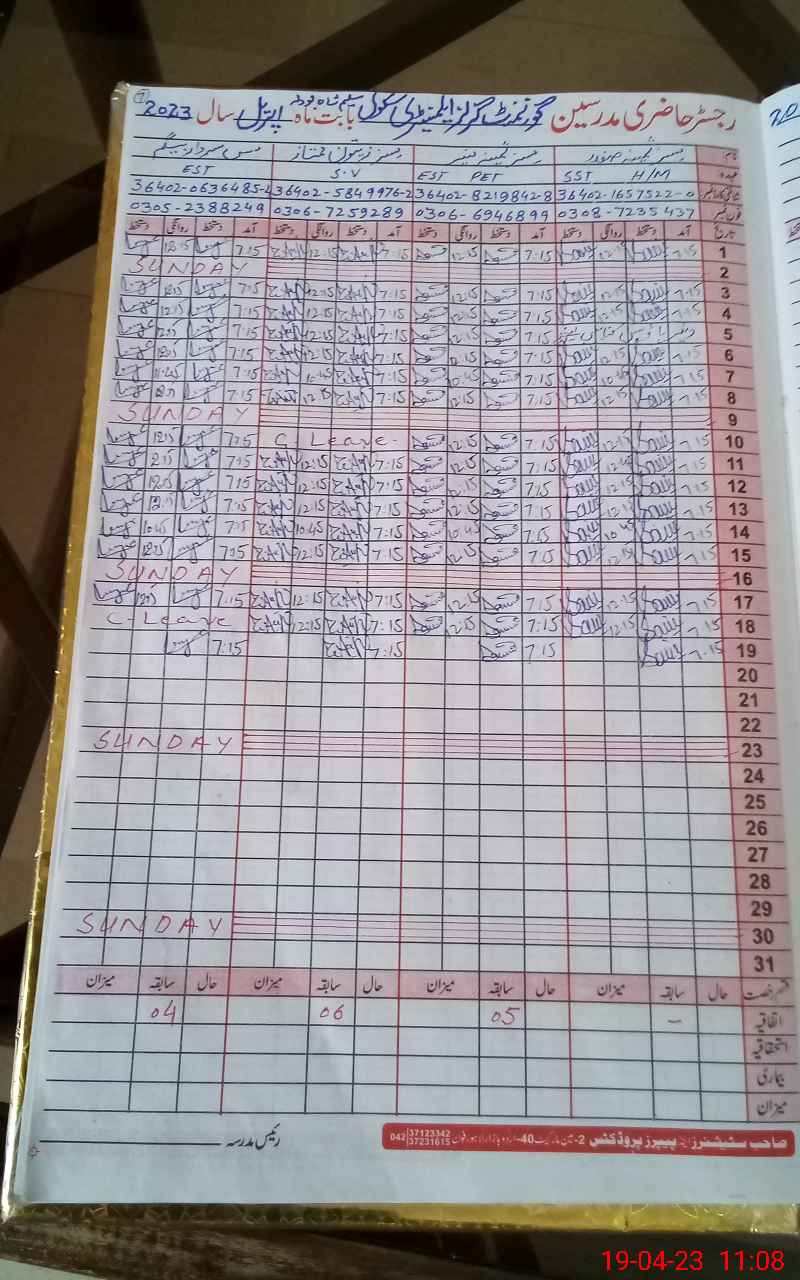 رجسٹر حاضری مدرسین گورنمنٹ گرلز ایلیمنٹری سکول سلیم شاہ بودلہ بابت ماہ اپریل سال 2023
نام
عہدہ SST H/M EST PET S.V EST
شناختی کارڈ نمبر 36402-1657522-0 36402-8219842-8 36402-5849976-2
فون نمبر 0308-7235437 0306-6946899 0306-7259289 0305-2388249
تاریخ آمد دستخط روانگی دستخط آمد دستخط روانگی دستخط آمد دستخط روانگی دستخط آمد دستخط روانگی دستخط
1 7:15 12:15 7:15 12:15 7:15 12:15 7:15 12:15
2 SUNDAY
3 7:15 12:15 7:15 12:15 7:15 12:15 7:15 12:15
4 7:15 12:15 7:15 12:15 7:15 12:15 7:15 12:15
5 7:15 12:15 7:15 12:15 7:15 12:15
6 7:15 12:15 7:15 12:15 7:15 12:15 7:15 12:15
7 7:15 10:45 7:15 10:45 7:15 10:45 7:15 10:45
8 7:15 12:15 7:15 12:15 7:15 12:15 7:15 12:15
9 SUNDAY
10 7:15 12:15 7:15 12:15 C. Leave 7:15 12:15
11 7:15 12:15 7:15 12:15 7:15 12:15 7:15 12:15
12 7:15 12:15 7:15 12:15 7:15 12:15 7:15 12:15
13 7:15 12:15 7:15 12:15 7:15 12:15 7:15 12:15
14 7:15 10:45 7:15 10:45 7:15 10:45 7:15 10:45
15 7:15 12:15 7:15 12:15 7:15 12:15 7:15 12:15
16 SUNDAY
17 7:15 12:15 7:15 12:15 7:15 12:15 7:15 12:15
18 7:15 12:15 7:15 12:15 7:15 12:15 C. Leave
19 7:15 7:15 7:15 7:15
20
21
22
23 SUNDAY
24
25
26
27
28
29
30 SUNDAY
31
قسم رخصت حال سابقہ میزان حال سابقہ میزان حال سابقہ میزان حال سابقہ میزان
اتفاقیہ - 05 06 04
استحقاقیہ
بیماری
میزان
رئیس مدرسہ
صاحب سٹیشنرز اینڈ پیپرز پروڈکٹس 2-مین مارکیٹ 40-اردو بازار لاہور فون 042 37123342 37231615
19-04-23 11:08